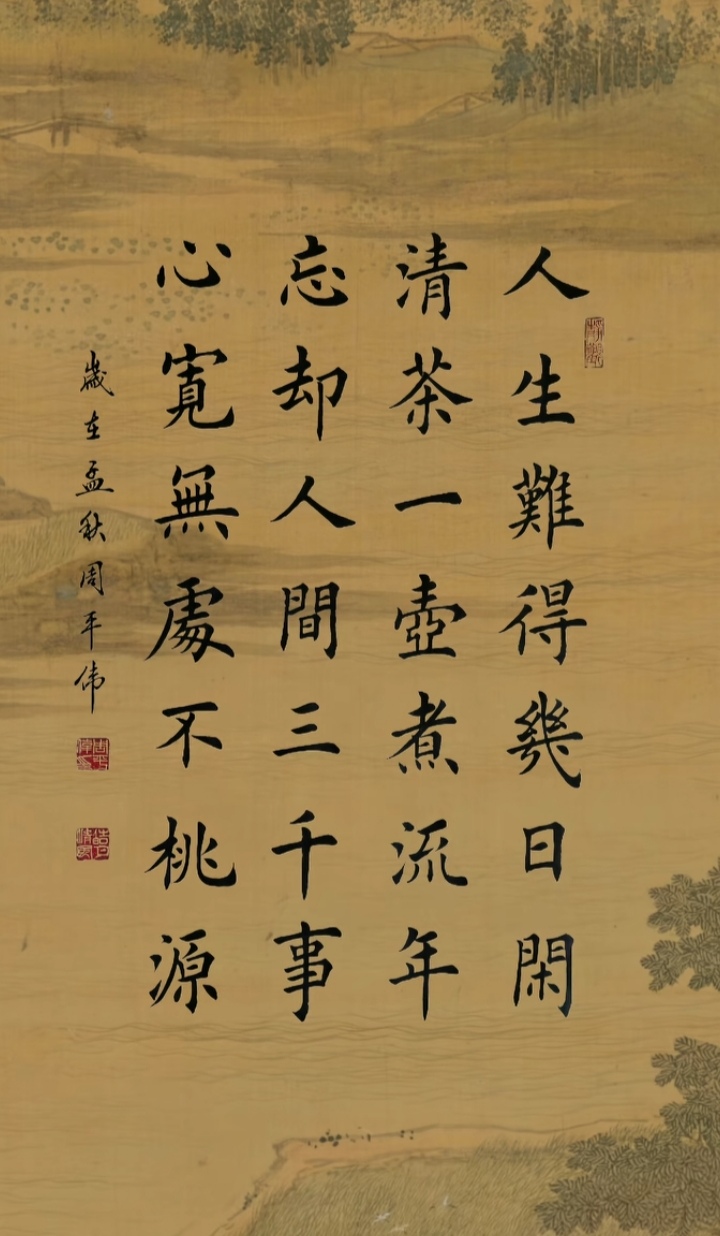 人生難得幾日閑
清茶一壺煮流年
忘却人間三千事
心寬無處不桃源
歲在孟秋周平伟